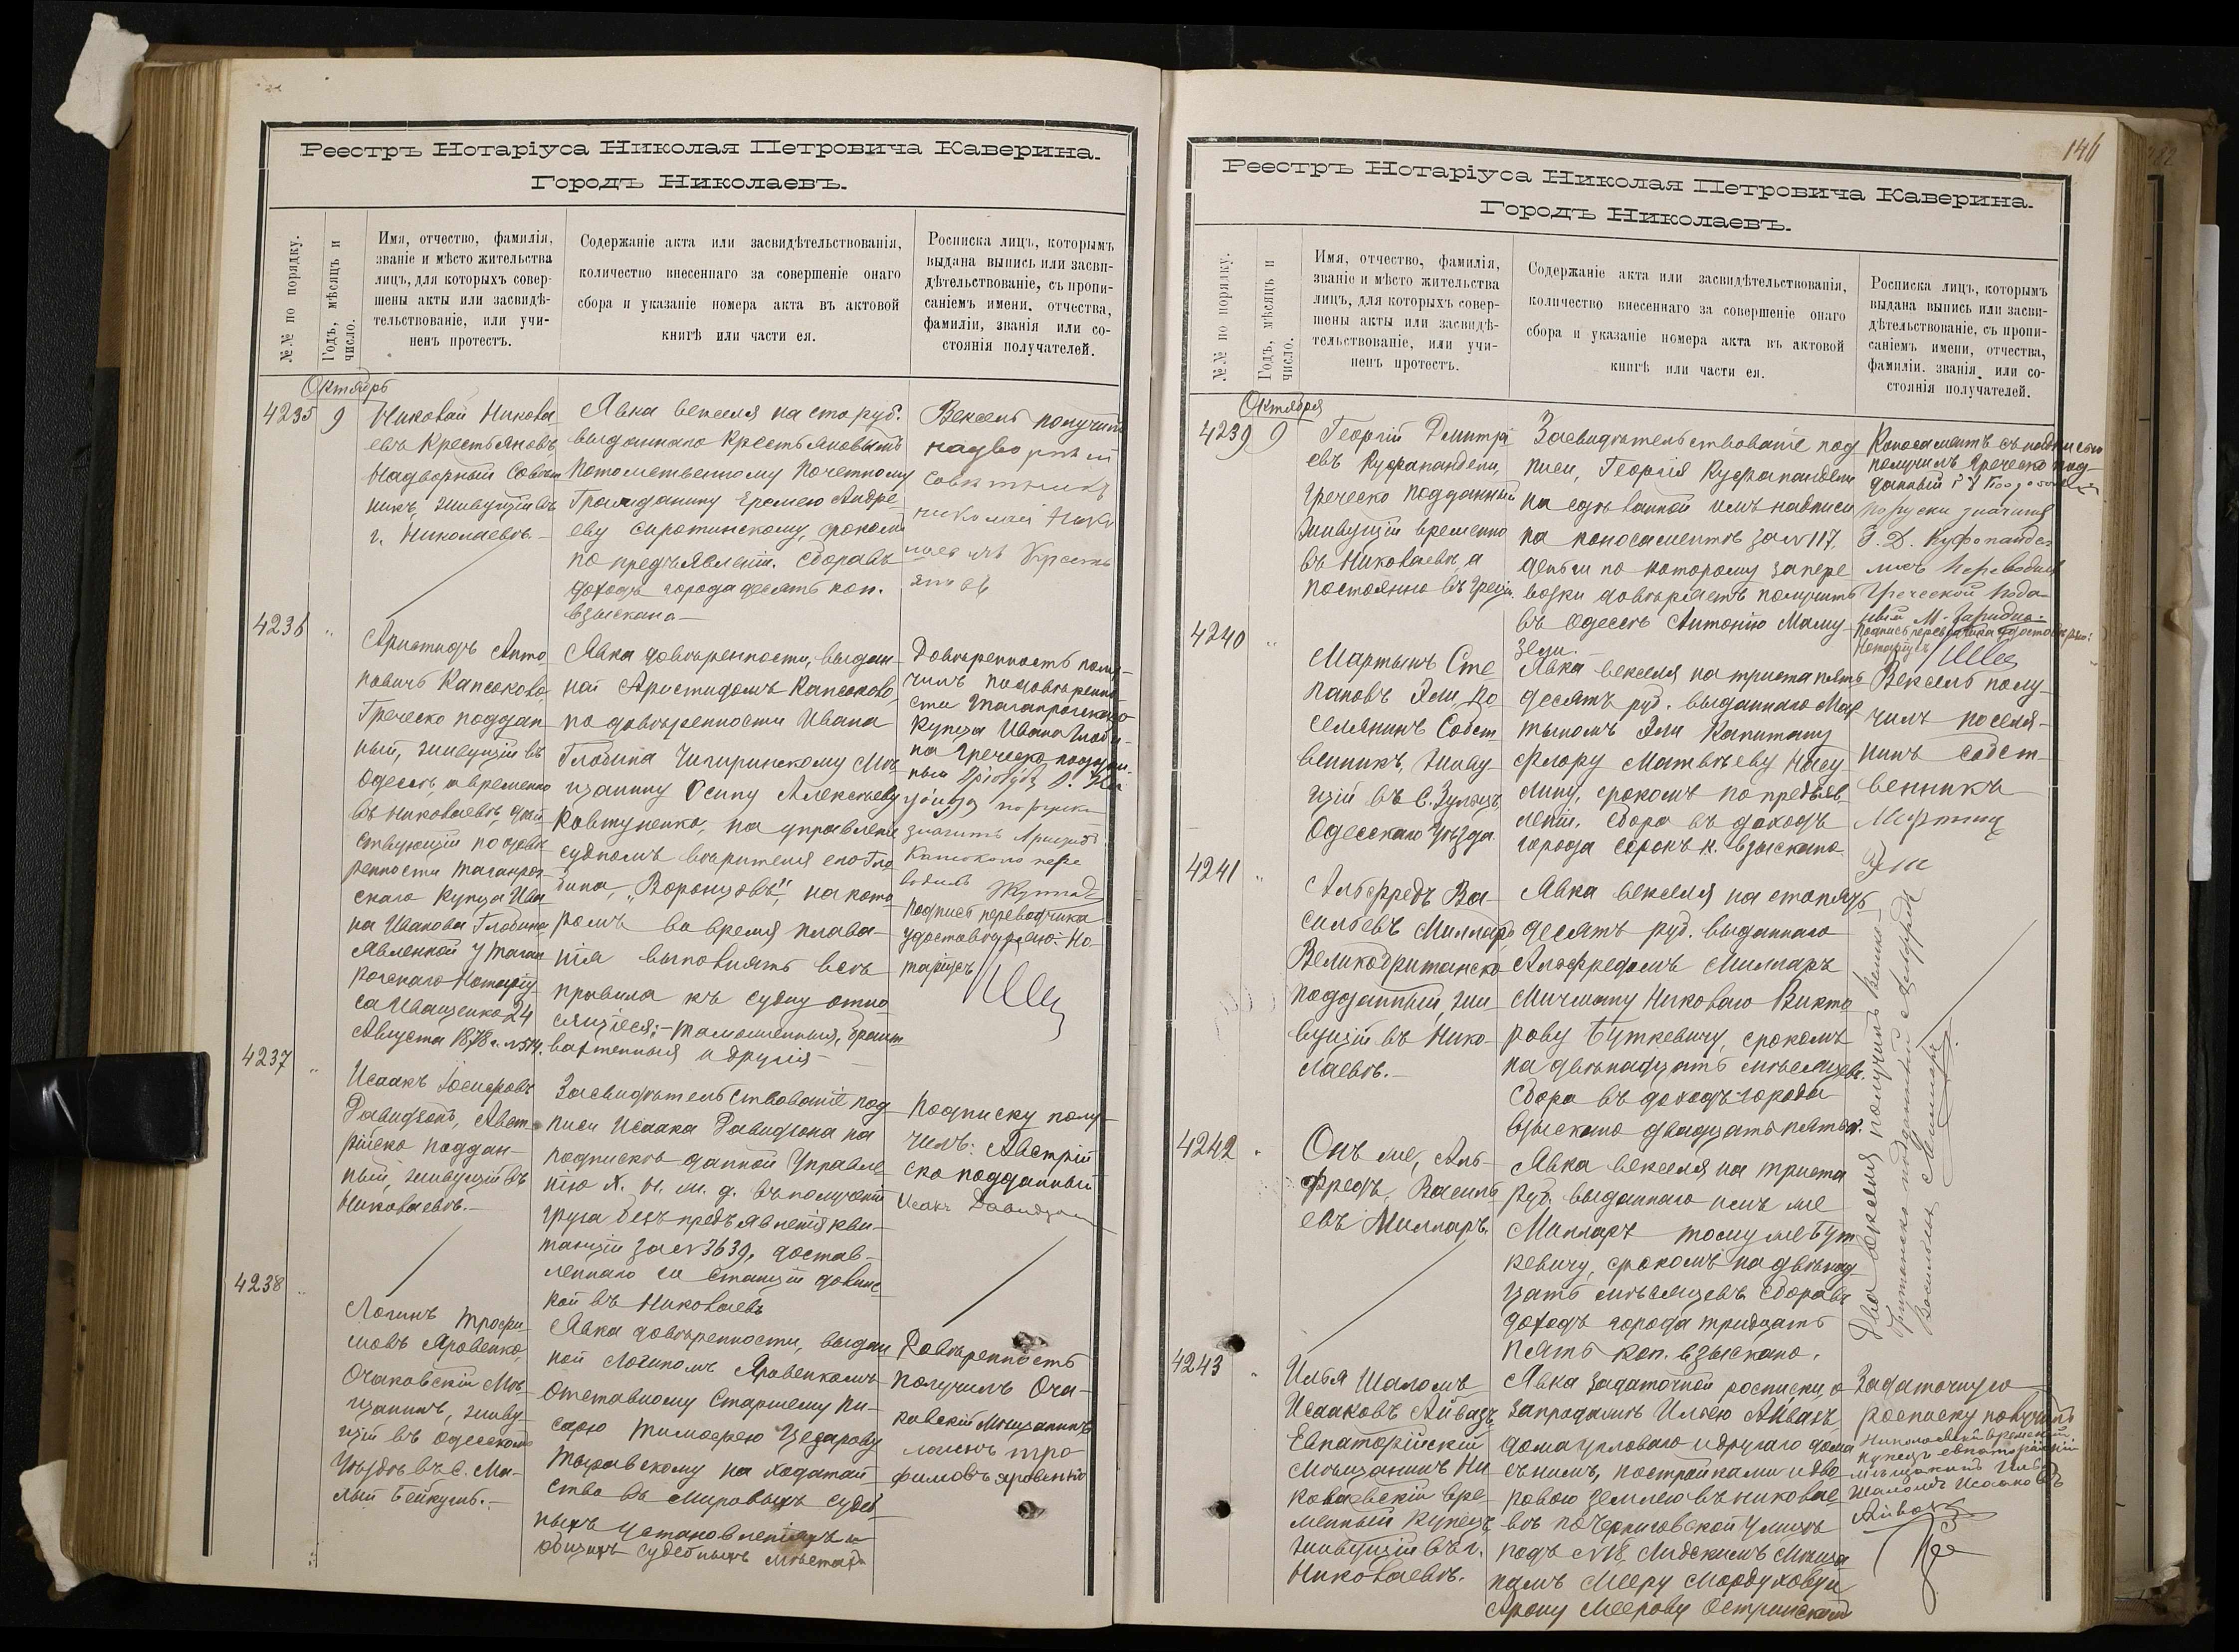 Реестръ Нотаріуса Николая Петровича Каверина.
Городъ Николаевъ.
№№ по порядку.
Годъ, мѣсяцъ и
число.
Имя, отчество, фамилія,
званіе и мѣсто жительства
лицъ, для которыхъ совер-
шены акты или засвидѣ-
тельствованіе, или учи-
ненъ протестъ.
Содержаніе акта или засвидѣтельствованія,
количество внесеннаго за совершеніе онаго
сбора и указаніе номера акта въ актовой
книгѣ или части ея.
Росписка лицъ, которымъ
выдана выпись или засви-
дѣтельствованіе, съ пропи-
саніемъ имени, отчества,
фамиліи, званія или со-
стоянія получателей.
Октябрь
4235
9
Николай Никола
евъ Крестьяновъ,
Надворный Совѣт
никъ, живущій въ
г. Николаевѣ.
Явка векселя на сто руб.
выданнаго Крестьяновымъ
Потомственному Почетному
Гражданину Еремею Андре-
еву Сиротинскому, срокомъ
по предъявленіи. Сбора въ
доходъ города десять коп.
взыскано
Вексель получилъ
надворный
Совѣтникъ
Николай Нико
лаевъ Кресть
яновъ
4236
"
Аристидъ Анто
новичъ Капсоколо,
Греческо поддан
ный, живущій въ
Одессѣ, а временно
въ Николаевѣ, дѣй
ствующій по довѣ
ренности Таганрог-
скаго купца Ива
на Иванова Глобина
явленной у Таган
рогскаго Нотаріу-
са Иващенко 24
Августа 1878 г. №574.
Явка довѣренности, выдан-
ной Аристидомъ Капсоколо,
по довѣренности Ивана
Глобина Чигиринскому Мѣ
щанину Осипу Алексѣеву
Ковтуненко, на управленіе
судномъ вѣрителя его Гло
бина, „Воронцовъ", на кото
ромъ во время плава-
нія выполнять всѣ
правила къ судну отно
сящіеся: таможенныя, брант
вахтенныя и другія
Довѣренность полу-
чилъ по довѣренно
сти Таганрогскаго
Купца Ивана Глоби-
на Греческо поддан-
ный
по русски
значитъ Аристидъ
Капсоколо пере
водилъ
Подпись переводчика
удостовѣряю: Но-
таріусъ
4237
"
Исаакъ Іосифовъ
Давидзонъ, Авст-
рійско поддан-
ный, живущій въ
Николаевѣ.
Засвидѣтельствованіе под
писи Исаака Давидзона на
подпискѣ данной Управле
нію Х. Н. ж. д. въ полученіи
груза безъ предъявленія кви-
танціи за №3639, достав-
леннаго со станціи долин
кой въ Николаевъ
Подписку полу-
чилъ: Австрій
ско подданный
Исакъ Давидзонъ
4238
"
Логинъ Трофи-
мовъ Яровенко,
Очаковскій Мѣ-
щанинъ, живу-
щій въ Одесскомъ
Уѣздѣ въ С. Ма-
лый Бейкушъ.
Явка довѣренности, выдан
ной Логиномъ Яровенкомъ
Отставному Старшему Пи-
сарю Тимофею Цезарову
Таравскому на ходатай
ство въ Мировыхъ судеб
ныхъ установленіяхъ и
общихъ судебныхъ мѣстахъ
Довѣренность
получилъ Оча-
ковскій Мѣщанинъ
логинъ тро
фимовъ яровенко
146
Реестръ Нотаріуса Николая Петровича Каверина.
Городъ Николаевъ.
№№ по порядку.
Годъ, мѣсяцъ и
число.
Имя, отчество, фамилія,
званіе и мѣсто жительства
лицъ, для которыхъ совер-
шены акты или засвидѣ-
тельствованіе, или учи-
ненъ протестъ.
Содержаніе акта или засвидѣтельствованія,
количество внесеннаго за совершеніе онаго
сбора и указаніе номера акта въ актовой
книгѣ или части ея.
Росписка лицъ, которымъ
выдана выпись или засви-
дѣтельствованіе, съ пропи-
саніемъ имени, отчества,
фамиліи. званія или со-
стоянія получателей.
Октября
4239
9
Георгій Дмитрі
евъ Куфапандели,
Греческо подданный
живущій временно
въ Николаевѣ, а
постоянно въ Греціи.
Засвидѣтельствованіе под
писи, Георгія Куфапандели
на сдѣланной имъ надписи
на коносаментѣ за №117.
деньги по которому за пере
возки довѣряетъ получить
въ Одессѣ Антонію Маму-
зели.
Коносаментъ съ надписью
получилъ Греческо под-
данный
по русски значитъ
Г. Д. Куфопандели
Переводилъ
Греческой подан-
ный М.
Подпись переводчика удостовѣряю:
Нотаріусъ
4240
"
Мартынъ Сте
пановъ Эли, По
селянинъ Собст
венникъ, живу-
щій въ С. Зульцъ
Одесскаго Уѣзда
Явка векселя на триста пять
десятъ руб. выданнаго Мар
тыномъ Эли Капитану
Флору Матвѣеву Ногу
лину, срокомъ по предъяв-
леніи. Сбора въ доходъ
города сорокъ к. взыскано.
Вексель полу-
чилъ поселя-
нинъ собст-
венникъ
Мартинъ
Эли
4241
"
Альфредъ Ва-
сильевъ Милларъ
Великобританско
подданный, жи-
вущій въ Нико-
лаевѣ.
Явка векселя на сто пять
десятъ руб. выданнаго
Альфредомъ Милларъ
Мичману Николаю Викто
рову Буткевичу, срокомъ
на двѣнадцать мѣсяцевъ.
Сбора въ доходъ города
взыскано двадцать пять к.
Два векселя получилъ Велико-
британско подданный Альфредъ
Васильевъ Милларъ.
4242
"
Онъ же, Аль-
фредъ Василь
евъ Милларъ.
Явка векселя на триста
руб. выданнаго имъ же
Милларъ тому же Бут
кевичу, срокомъ на двѣнад
цать мѣсяцевъ. Сбора въ
доходъ города тридцать
пять коп. взыскано.
4243
"
Илья Шаломъ
Исааковъ Айвазъ,
Евпаторійскій
Мѣщанинъ Ни
колаевскій вре-
менный купецъ
живущій въ г.
Николаевѣ.
Явка задаточной росписки, о
запродажѣ Ильею Айвазъ,
дома угловаго и другаго дома
съ нимъ, постройками и дво
ровою землею въ Николае
вѣ по Черниговской улицѣ
подъ №18, Лидскимъ Мѣща
намъ Мееру Мордуховцу и
Арону Меерову Остринскому
Задаточную
росписку получилъ
Николаевскій временный
купецъ евпаторійскій
мѣщанинъ Илья
Шаломъ Исааковъ
Айвазъ